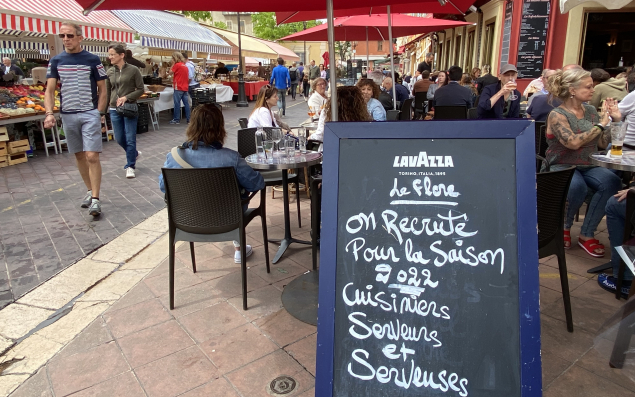 LAVAZZA
TORINO, ITALIA, 1895
Le Flore
On Recrute
Pour la Saison
2022
Cuisiniers
Serveurs
et
Serveuses